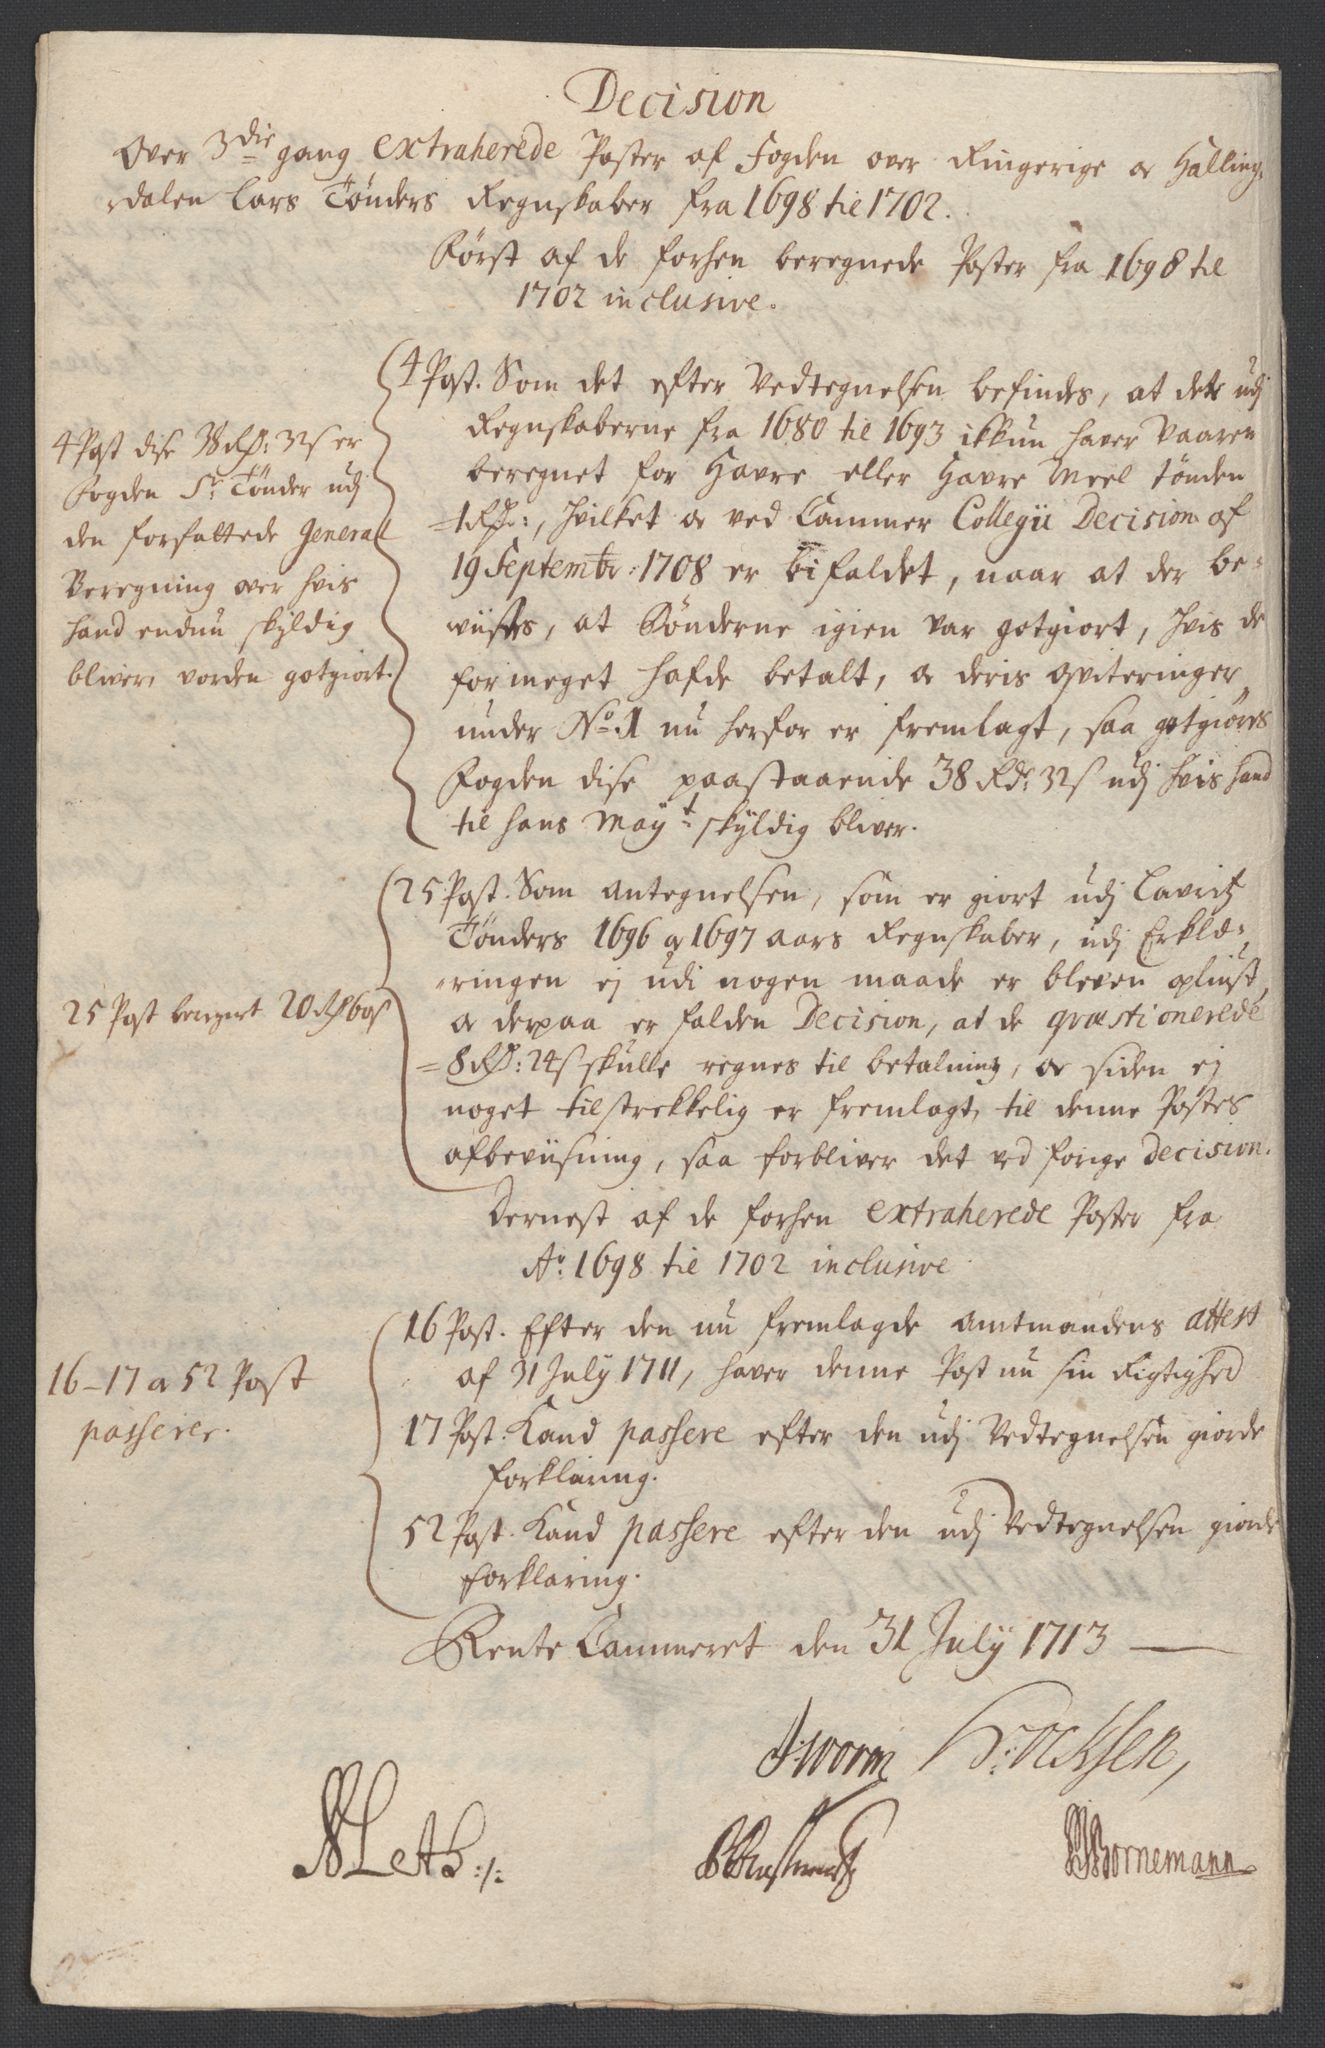 Decision
Over 3die gang extraherede Poster af Fogden over Ringerige og Halling¬
dalen Lars Tønders Regnskaber fra 1698 til 1702.
Først af de forhen beregnede Poster fra 1698 til
1702 inclusive.
4 Post. Som det efter Vedtegnelsen befindes, at dete udj
Regnskaberne fra 1680 til 1693 ikkun haver vaaren
beregnet for Havre eller Havre Meel tønden
1 Rdr:, hvilket og ved Cammer Collegii Decision af
19 Septembr: 1708 er bifaldet, naar at der be¬
wiistes, at Bønderne igien var gotgiort, hvis de
for meget hafde betalt, og deris qviteringer
under No: 1 nu herfor er fremlagt, saa gotgiøres
Fogden dise paastaaende 38 Rdr: 32 s udj hvis hand
til hans Mayt skyldig bliver.
4 Post dise 38 Rdr: 32 s er
Fogden Sr. Tønder udj
den forfattede General
Beregning over hvis
hand endnu skyldig
bliver, vorden gotgiort.
25 Post. Som Antegnelsen, som er giort udj Lavritz
Tønders 1696 og 1697 aars Regnskaber, udj Erklæ¬
ringen ej udi nogen maade er bleven opliust,
og derpaa er falden Decision, at de qvæstionerede
8 Rdr: 24 s skulle regnes til betalning, og siden ej
noget tilstrekkelig er fremlagt, til denne Postes
afbeviisning, saa forbliver det ved forige Decision.
25 Post beregnet 20 Rdr 60 s
Dernest af de forhen extraherede Poster fra
Ao: 1698 til 1702 inclusive
16 Post. Efter den nu fremlagde Amtmandens attest
af 31 July 1711, haver denne Post nu sin Rigtighed
17 Post. Kand passere efter den udj Vedtegnelsen giorde
forklaring.
52 Post. Kand passere efter den udj Vedtegnelsen giorde
forklaring.
16-17 og 52 Post
passerer.
Rente Cammeret den 31 July 1713
J: Worm
Bornemann